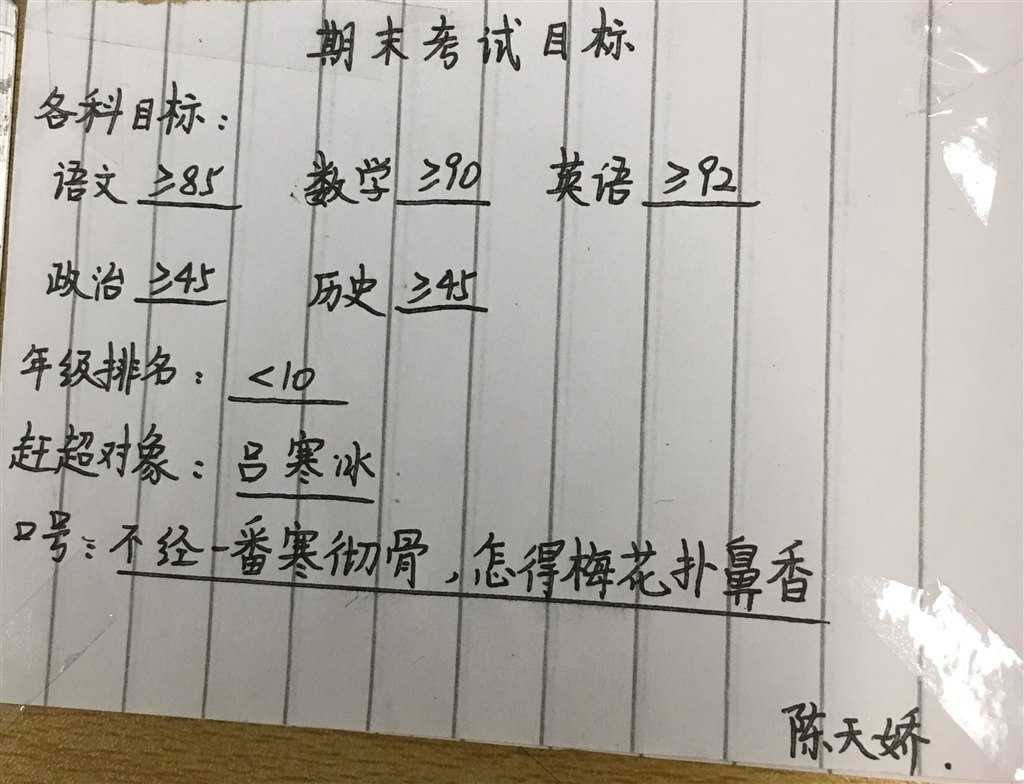 期末考试目标
各科目标：
语文 ≥85 数学 ≥90 英语 ≥92
政治 ≥45 历史 ≥45
年级排名： <10
赶超对象： 吕寒冰
口号：不经一番寒彻骨，怎得梅花扑鼻香
陈天娇.